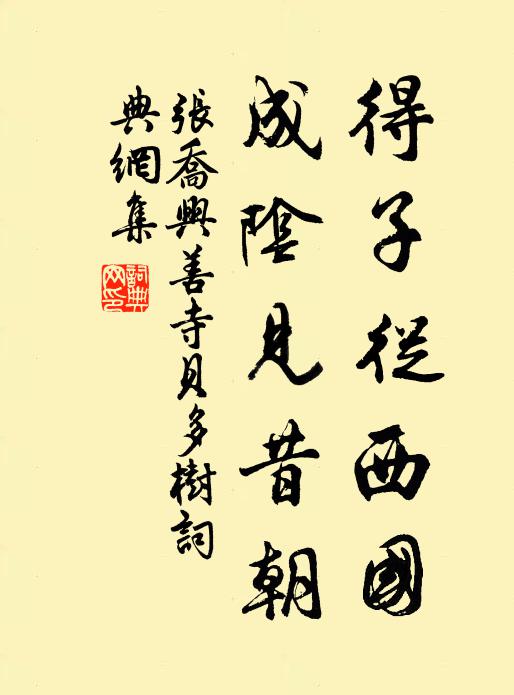 得子從西國
成陰見昔朝
張喬興善寺貝多樹詞
典網集
詞典網印